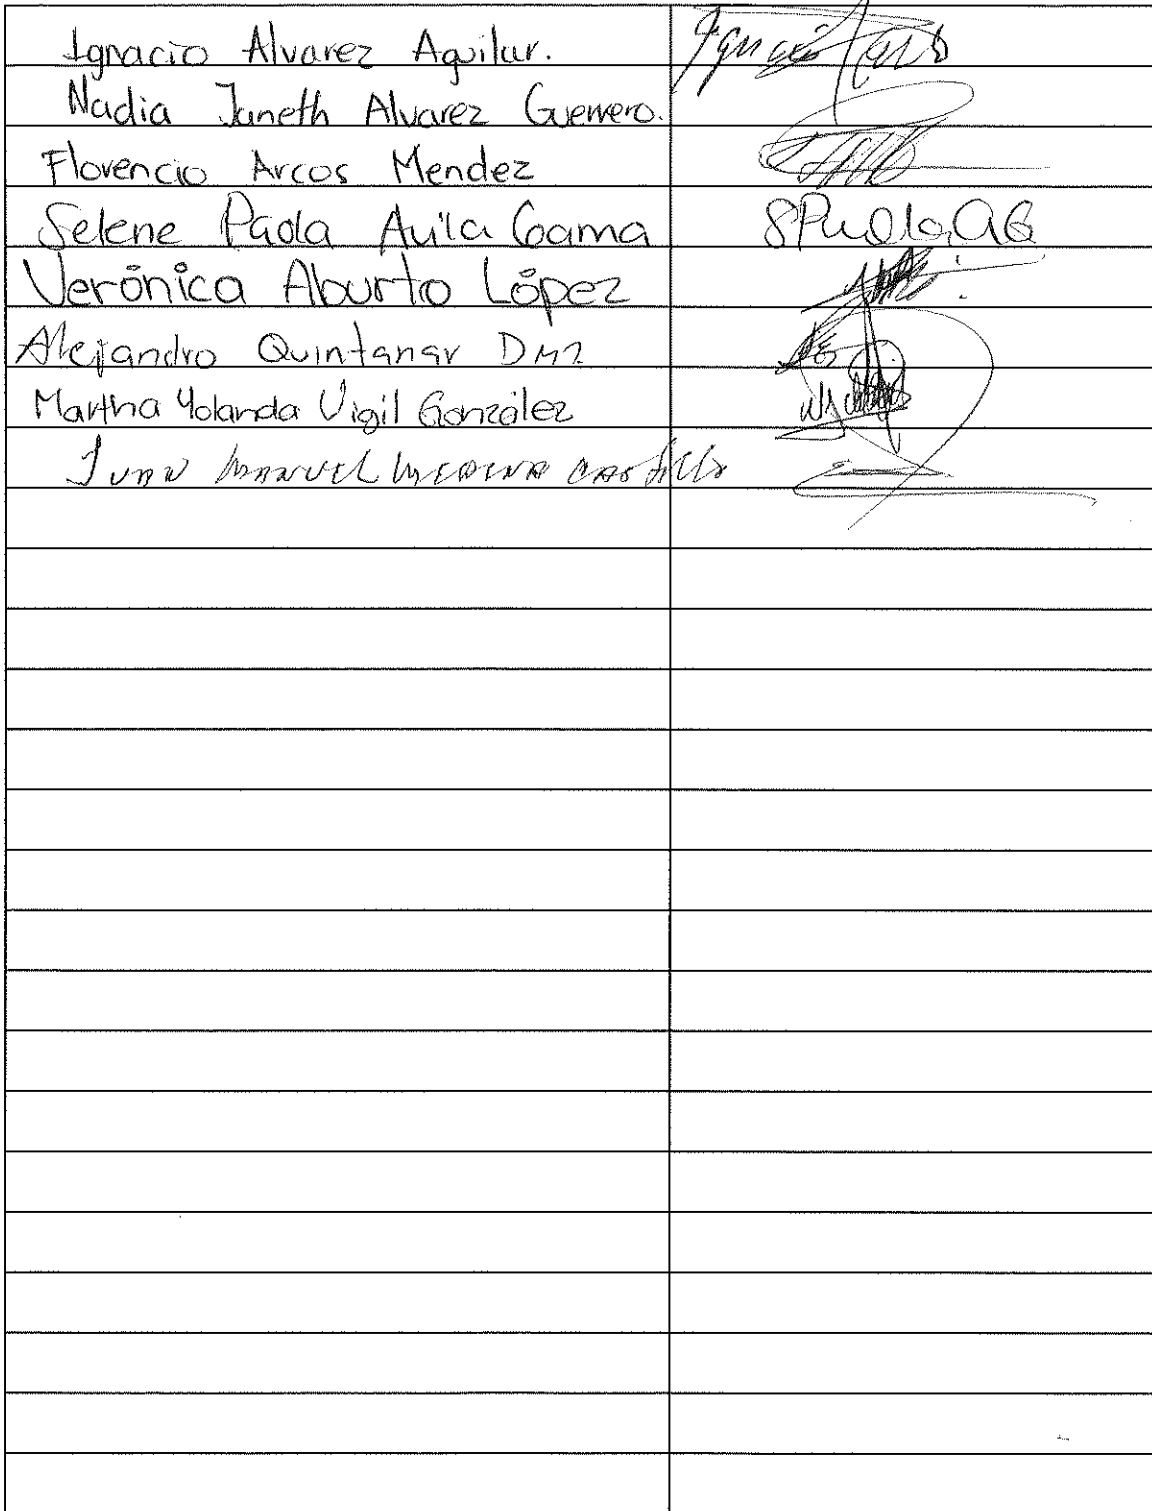 Ignacio Alvarez Aguilar.
Nadia Janeth Alvarez Guerrero.
Florencio Arcos Mendez
Selene Paola Avila Gama SPaola AG
Verónica Aburto López
Alejandro Quintanar
Martha Yolanda Vigil González
JUAN MANUEL MEDINA CASTILLO